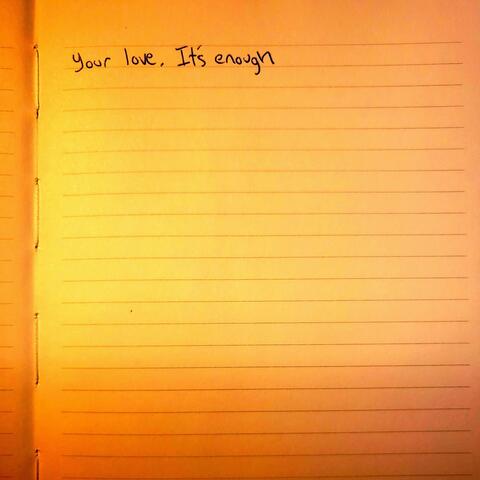 Your love. It's enough